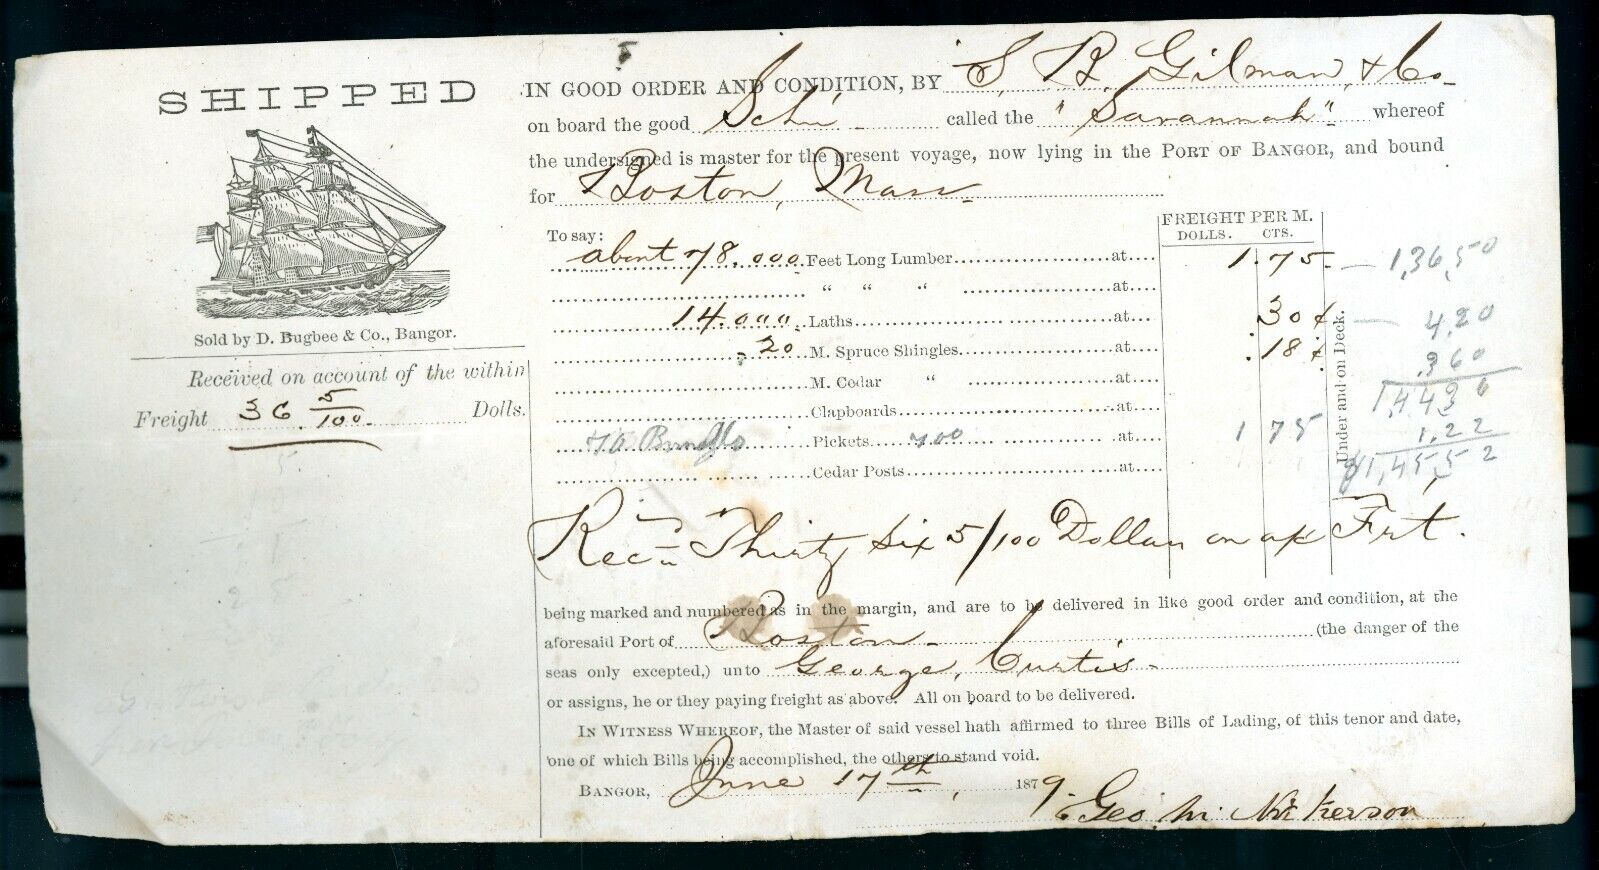 SHIPPED
Sold by D. Bugbee & Co., Bangor.
Received on account of the within
Freight 36 5/100 Dolls.
IN GOOD ORDER AND CONDITION, BY S. R. Gilman, & Co
on board the good Schr called the "Savannah" whereof
the undersigned is master for the present voyage, now lying in the PORT OF BANGOR, and bound
for Boston, Mass
FREIGHT PER M.
DOLLS. CTS.
To say:
about 78.000 Feet Long Lumber at 1.75 — 1,36,50
" " " at
14.000 Laths at 30¢ — 4,20
20 M. Spruce Shingles at 18¢ 360
M. Cedar " at 1,4430
Clapboards at
70 Bundls Pickets 700 at 1 75 1,22
Cedar Posts at $1,45,52
Under and on Deck.
Recd Thirty Six 5/100 Dollars on a/c Frt.
being marked and numbered as in the margin, and are to be delivered in like good order and condition, at the
aforesaid Port of Boston (the danger of the
seas only excepted,) unto George, Curtis
or assigns, he or they paying freight as above. All on board to be delivered.
IN WITNESS WHEREOF, the Master of said vessel hath affirmed to three Bills of Lading, of this tenor and date,
one of which Bills being accomplished, the others to stand void.
BANGOR, June 17th, 1879
Geo. M Nickerson